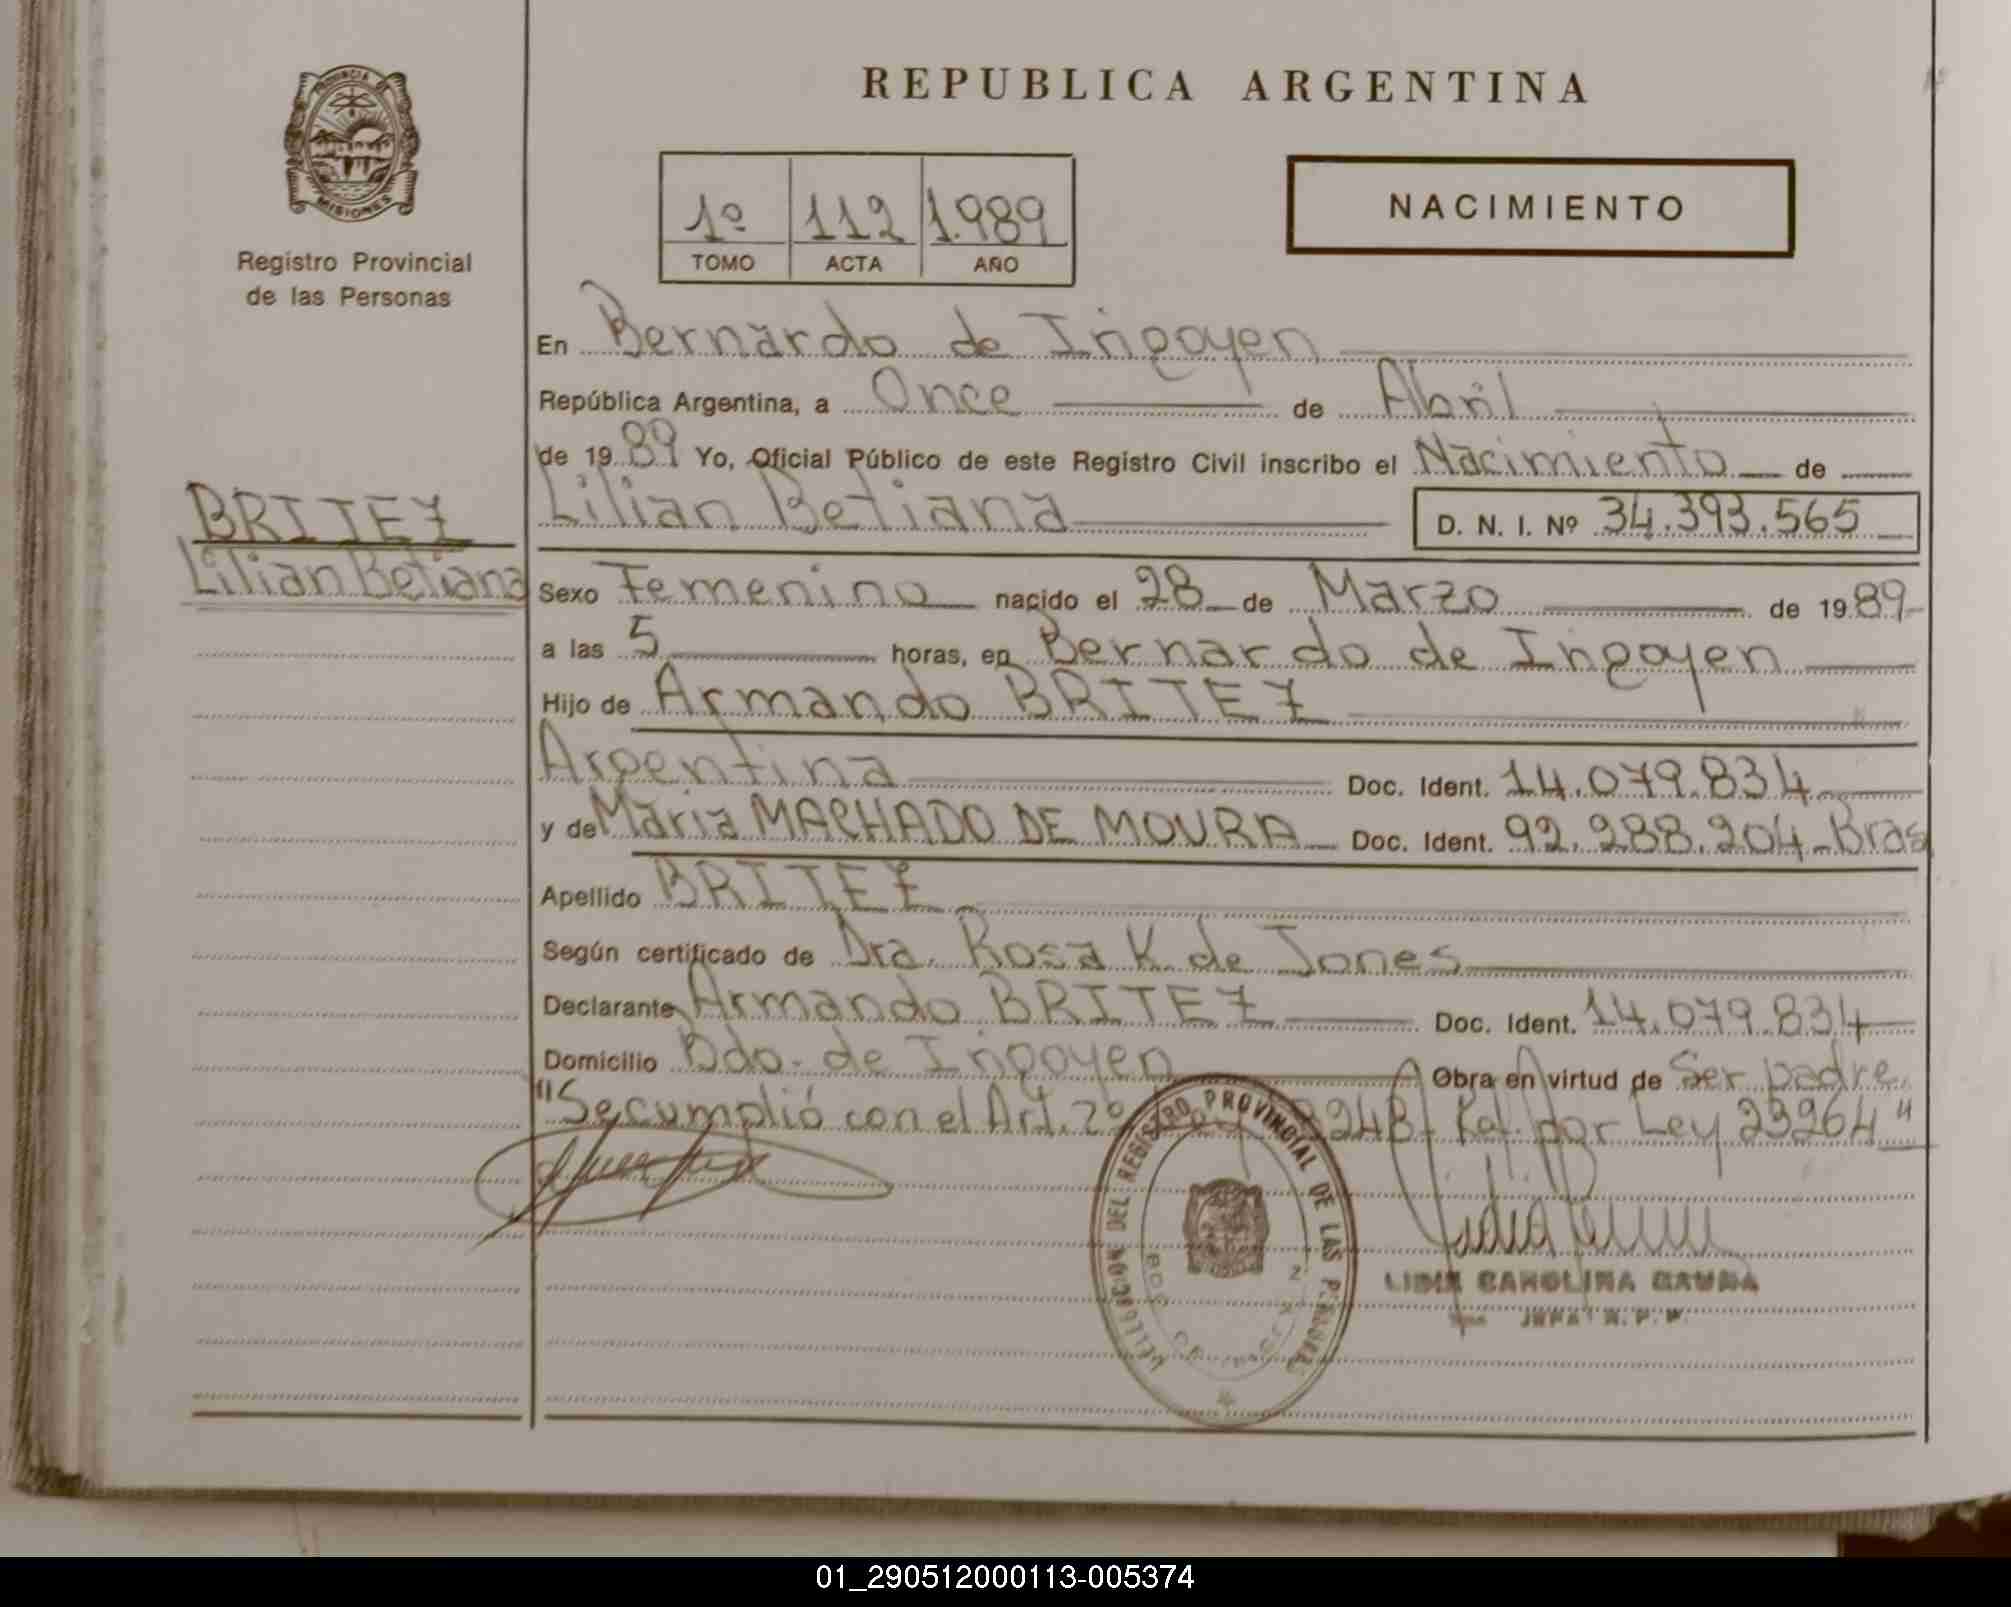 REPUBLICA ARGENTINA
PROVINCIA
MISIONES
Registro Provincial
de las Personas
1º 112 1.989
TOMO ACTA AÑO
NACIMIENTO
En Bernardo de Irigoyen
República Argentina, a Once de Abril
de 1989 Yo, Oficial Público de este Registro Civil inscribo el Nacimiento de
BRITEZ
Lilian Betiana
Lilian Betiana D. N. I. Nº 34.393.565
Sexo Femenino nacido el 28 de Marzo de 1989
a las 5 horas, en Bernardo de Irigoyen
Hijo de Armando BRITEZ
Argentina Doc. Ident. 14.079.834
y de Maria MACHADO DE MOURA Doc. Ident. 92.288.204-Bras
Apellido BRITEZ
Según certificado de Dra. Rosa K. de Jones
Declarante Armando BRITEZ Doc. Ident. 14.079.834
Domicilio Bdo. de Irigoyen Obra en virtud de Ser padre
"Se cumplió con el Art. 2º 248 Ref. por Ley 23264"
DELEGACION DEL REGISTRO PROVINCIAL DE LAS PERSONAS
LIDIA CAROLINA
JEFA R. P. P.
01_290512000113-005374